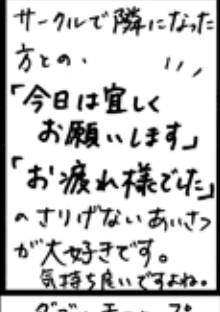 サークルで隣になった
方との、
「今日は宜しく
お願いします」
「お疲れ様でした」
のさりげないあいさつ
が大好きです。
気持ち良いですよね。